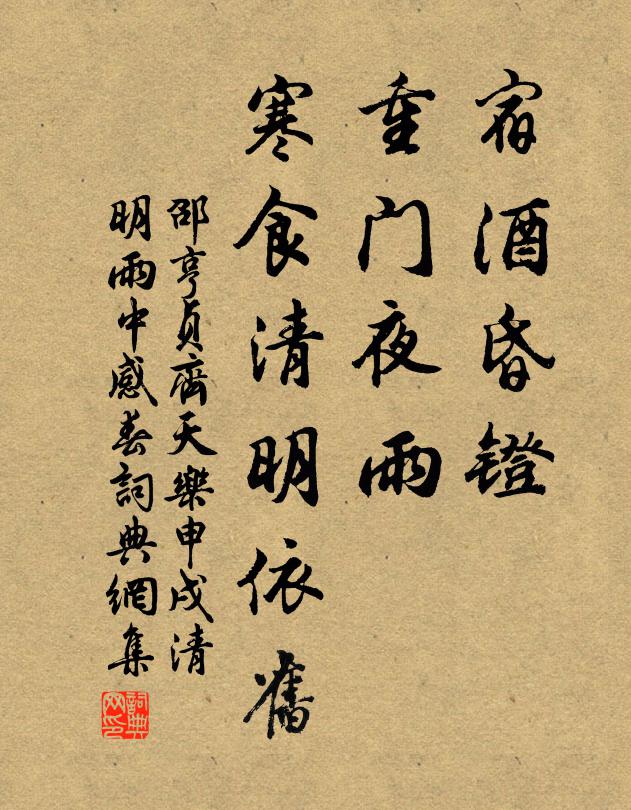 宿酒昏鐙
重门夜雨
寒食清明依舊
邵亨貞齊天樂申戌清
明雨中感春詞典網集
詞典
网印